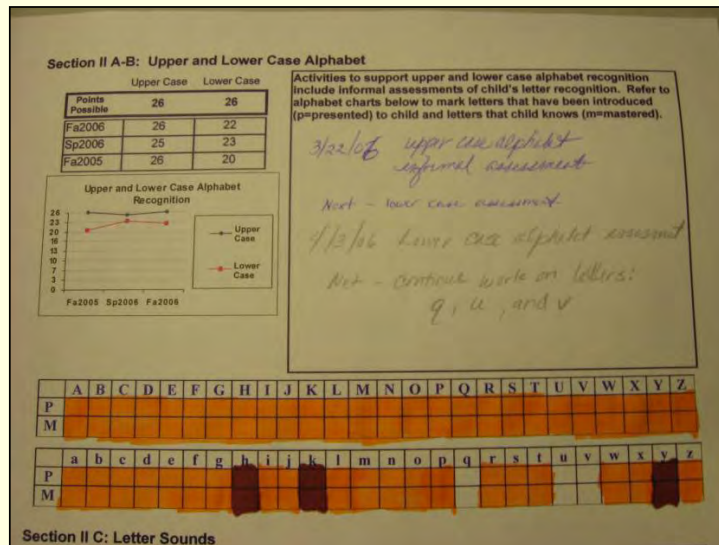 Section II A-B: Upper and Lower Case Alphabet
Upper Case Lower Case
Points Possible 26 26
Fa2006 26 22
Sp2006 25 23
Fa2005 26 20
Upper and Lower Case Alphabet
Recognition
26
23
20
16
13
10
7
3
0
Fa2005 Sp2006 Fa2006
Upper
Case
Lower
Case
Activities to support upper and lower case alphabet recognition
include informal assessments of child's letter recognition. Refer to
alphabet charts below to mark letters that have been introduced
(p=presented) to child and letters that child knows (m=mastered).
3/22/06 upper case alphabet
informal assessment
Next - lower case assessment
4/13/06 Lower case alphabet assessment
Next - continue work on letters:
q, u, and v
A B C D E F G H I J K L M N O P Q R S T U V W X Y Z
P
M
a b c d e f g h i j k l m n o p q r s t u v w x y z
P
M
Section II C: Letter Sounds